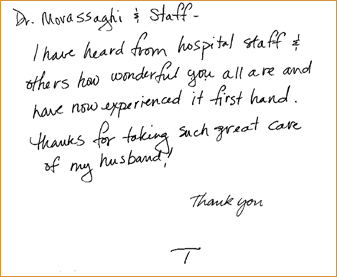 Dr. Movassaghi & Staff -
I have heard from hospital staff &
others how wonderful you all are and
have now experienced it first hand.
Thanks for taking such great care
of my husband!
Thank you
T